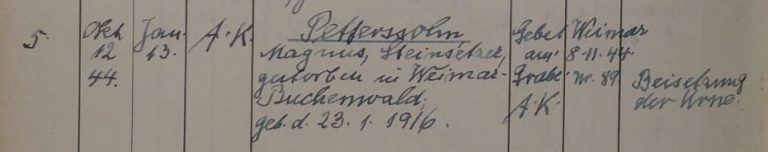 5. Okt. Jan. A. K. Petterssohn Gebet Weimar
12 13. Magnus, Steinsetzer, am 8.11.44
44. gestorben in Weimar- Grabe Nr. 89 Beisetzung
Buchenwald. A. K. der Urne.
geb. d. 23. 1. 1916.